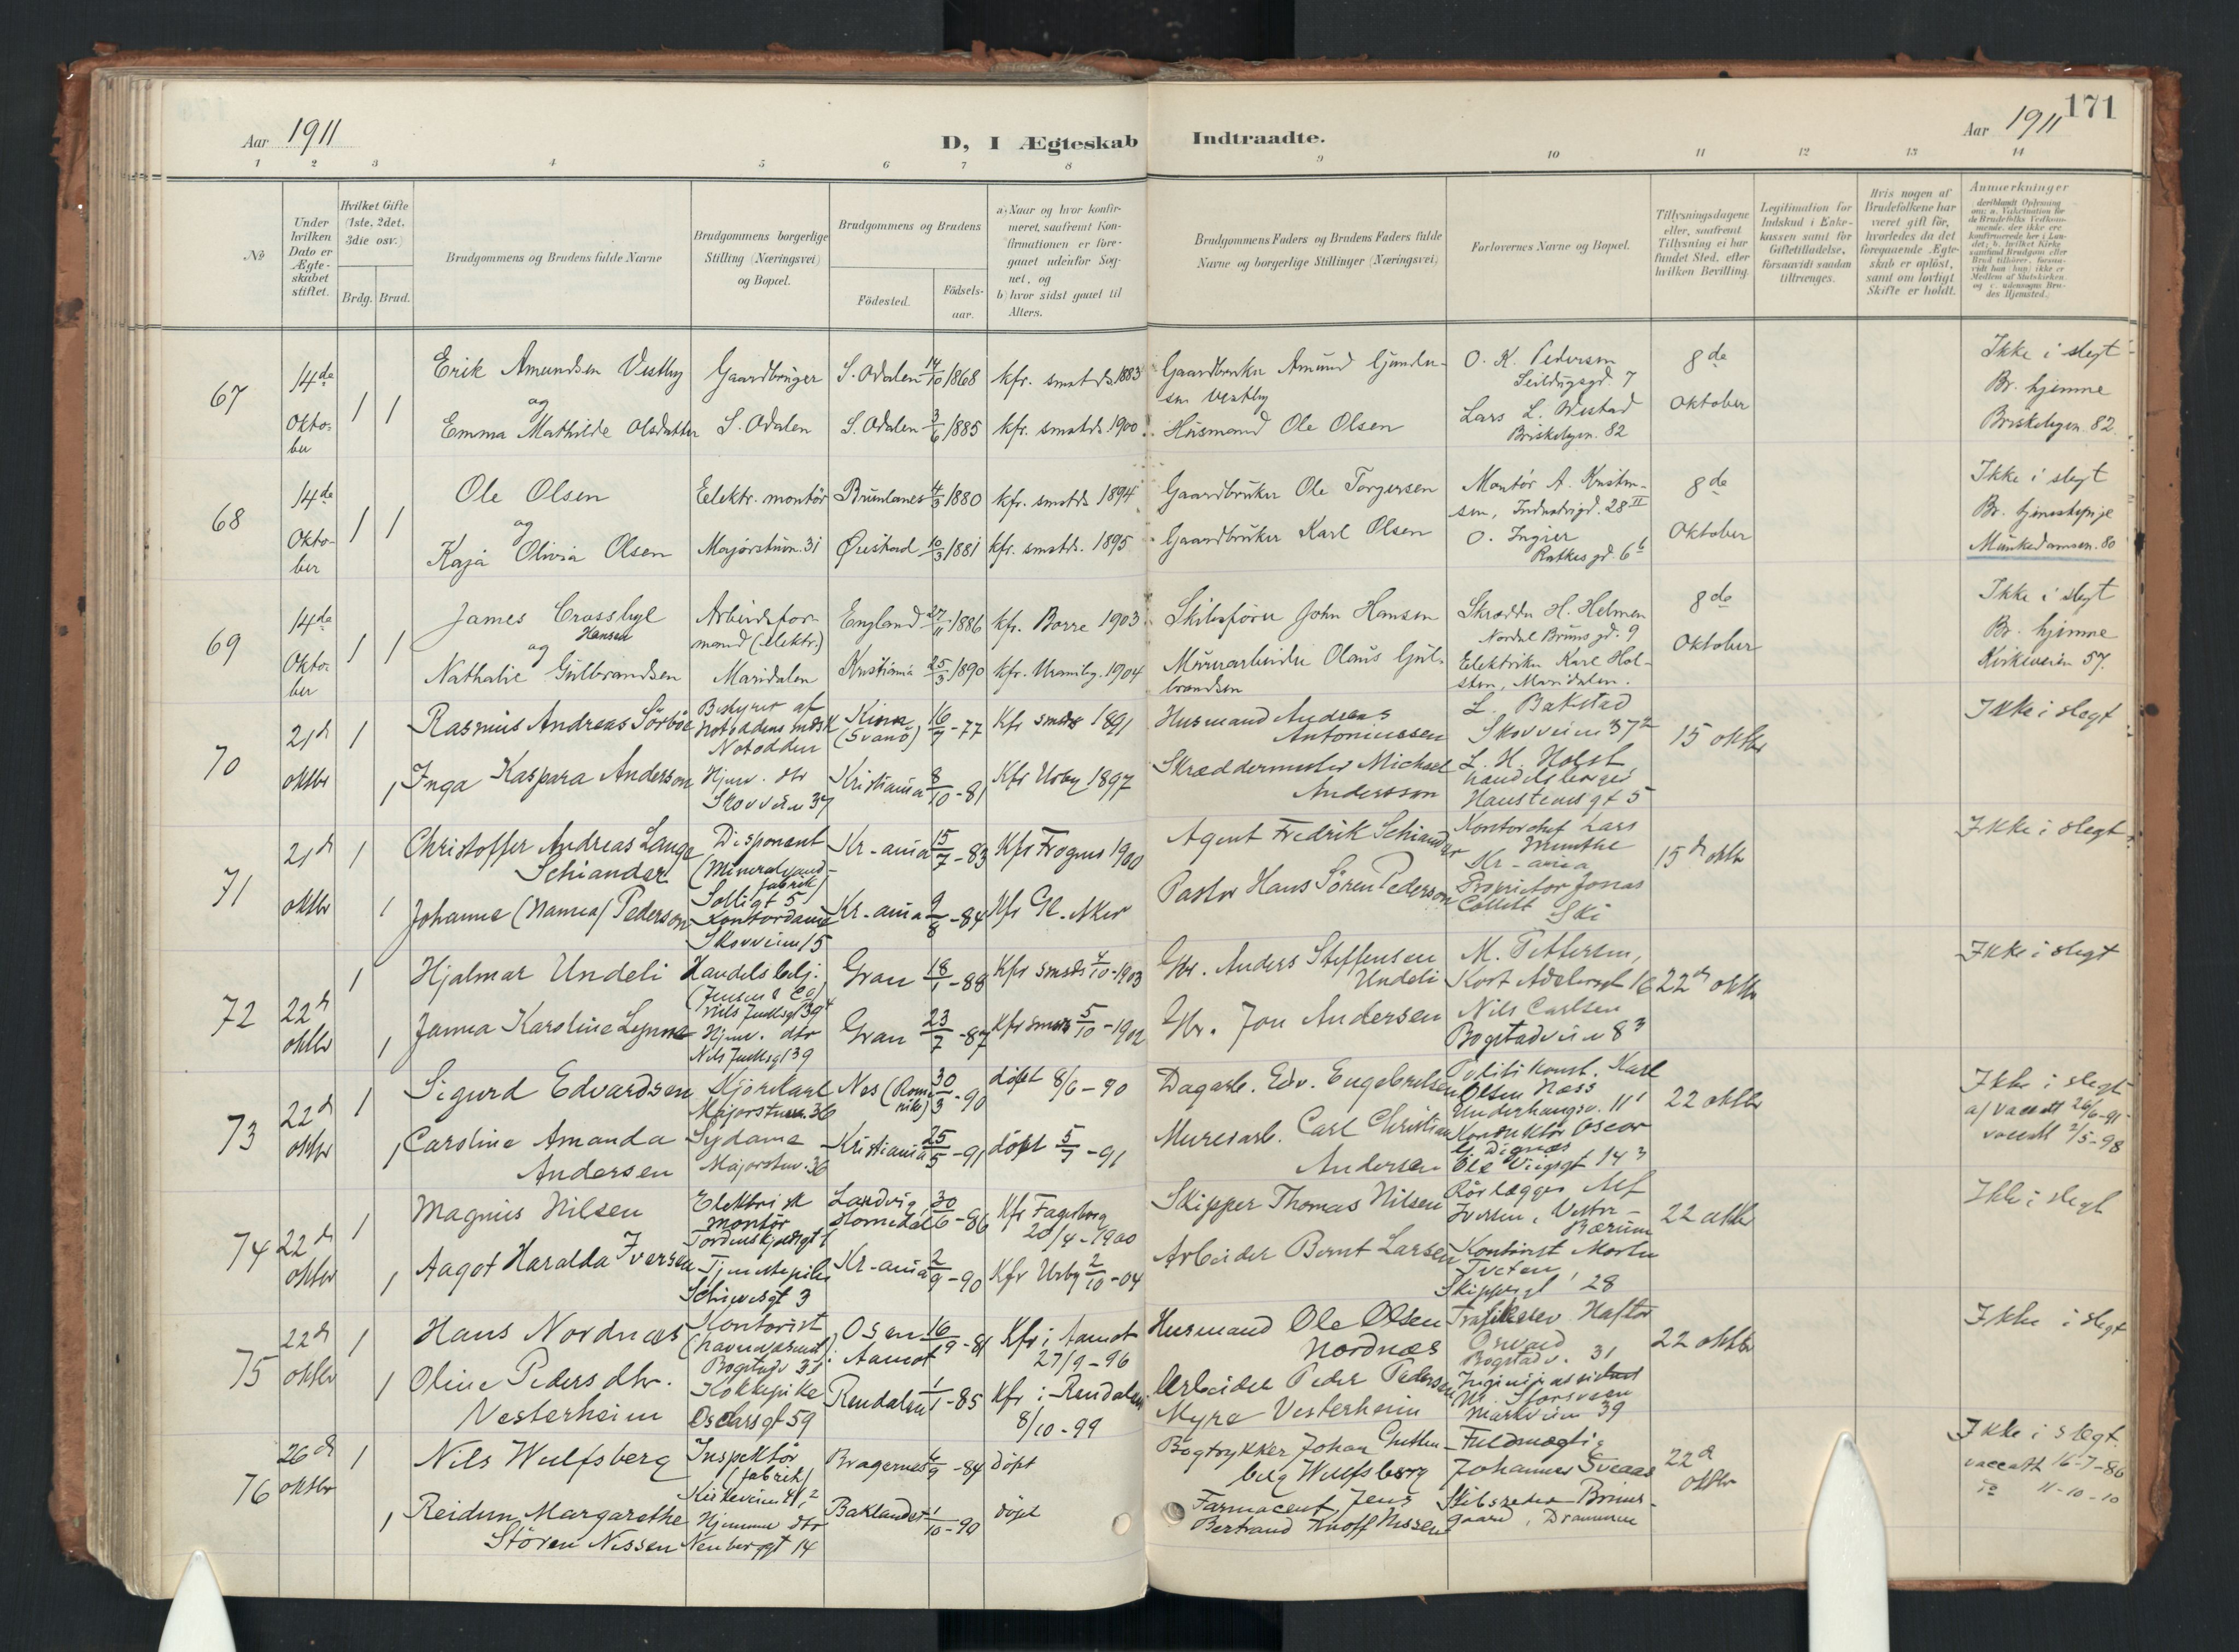 Aar 1911
D, I Ægteskab
Indtraadte.
Aar 1911
171
1 2 3 4 5 6 7 8 9 10 11 12 13 14
No
Under hvilken Dato er Ægteskabet stiftet.
Hvilket Gifte (1ste, 2det, 3die osv.)
Brdg. Brud.
Brudgommens og Brudens fulde Navne
Brudgommens borgerlige Stilling (Næringsvei) og Bopæl.
Brudgommens og Brudens
Födested.
Födsels-aar.
a) Naar og hvor konfirmeret, saafremt Konfirmationen er foregaaet udenfor Sognet, og
b) hvor sidst gaaet til Alters.
Brudgommens Faders og Brudens Faders fulde Navne og borgerlige Stillinger (Næringsvei)
Forlovernes Navne og Bopæl.
Tillysningsdagene eller, saafremt Tillysning ei har fundet Sted, efter hvilken Bevilling.
Legitimation for Indskud i Enkekassen samt for Giftetilladelse, forsaavidt saadan tiltrænges.
Hvis nogen af Brudefolkene har været gift för, hvorledes da det foregaaende Ægteskab er oplöst, samt om lovligt Skifte er holdt.
Anmerkninger
67 14de Oktober 1 1
Erik Amundsen Vestby
og
Emma Mathilde Olsdatter
Gaardbruger
S. Odalen
S. Odalen 14/10 1868 kfr. smstds. 1883
S. Odalen 3/6 1885 kfr. smstds. 1900
Gaardbruker Amund Gunder-
sen Vestby
Husmand Ole Olsen
O. K. Pedersen
Seildugsgd. 7
Lars L. Westad
Briskebyvn. 82
8de
Oktober
Ikke i slegt
Br. hjemme
Briskebyvn. 82
68 14de Oktober 1 1
Ole Olsen
og
Kaja Olivia Olsen
Eelektr. montör
Majorstuvn. 31
Brunlanes 4/3 1880 kfr. smstds 1894
Öiestad 10/3 1881 kfr. smstds. 1895
Gaardbruker Ole Torgersen
Gaardbruker Karl Olsen
Montör A. Kristen-
sen, Industrigd. 28 II
O. Ingier
Ratkes gd. 6b
8de
Oktober
Ikke i slegt
Br. tjenestepige
Munkedamsvn. 80
69 14de Oktober 1 1
James Crossbyl
Hansen
og
Nathalie Gulbrandsen
Arbeidsfor-
mand (elektr.)
Maridalen
England 27/11 1886 kfr. Borre 1903
Kristiania 25/3 1890 kfr. Uranibg. 1904
Skibsförer John Hansen
Murarbeider Olaus Gul-
brandsen
Skrædder H. Helmen
Nordal Bruns gd. 9
Elektriker Karl Hol-
sten, Maridalen.
8de
Oktober
Ikke i slegt
Br. hjemme
Kirkeveien 57.
70 21de oktbr 1 1
Rasmus Andreas Sörböe
Inga Kaspara Anderson
Bestyrer af
Notoddens
Notodden
Hjem. dtr
Skovveien 37
Kinn (Svanö) 16/9-77 Kfr smstds 1891
Kristiania 8/10-81 Kfr Urbg 1897
Husmand Andreas
Antoniussen
Skræddermester Michael
Andersson
L. Bakstad
Skovveien 37 2
L. H. Holst
handelsborger
Haustensgt 5
15 oktbr
Ikke i slegt
71 21de oktbr 1 1
Christoffer Andreas Lange
Schiander
Johanne (Nanna) Pederson
Disponent
(Mineralvand-
fabrik)
Solligt 5
Kontordame
Skovveien 15
Kr-ania 15/7-83 Kfr Frogner 1900
Kr-ania 9/8-84 Kfr Gl. Aker
Agent Fredrik Schiander
Pastor Hans Sören Pederson
Kontorchef Lars
Munthe
Kr-ania
Proprietor Jonas
Collett Ski
15de oktbr
Ikke i slegt
72 22de oktbr 1 1
Hjalmar Undeli
Janna Karoline Lynne
Handelsbetj.
(Jensen & Co)
Nils Juelsgt 39 4
Hjem. dtr
Nils Juelsgt 39
Gran 18/1-88 Kfr smstds 4/10-1903
Gran 23/7-87 Kfr smstds 5/10-1902
Gbr. Anders Steffensen
Undeli
Gbr. Jon Andersen
M. Pettersen,
Kort Adelersgt 16
Nils Carlsen
Bogstadveien 8 3
22de oktbr
Ikke i slegt
73 22de oktbr 1 1
Sigurd Edvardsen
Caroline Amanda
Andersen
Kjörekarl
Majorstuvn. 36
Sydame
Majorstuv. 36
Nes (Romerike) 30/3-90 döpt 8/6-90
Kristiania 25/5-91 döpt 5/7-91
Dagarb. Edv. Engebretsen
Murerarb. Carl Christian
Andersen
Politikonst. Karl
Olsen Næss
Underhaugsv. 11
Konduktör Oscar
G. Dignæs
Ole Vigsgt 14 3
22 oktbr
Ikke i slegt
a/ vaccatt 26/6-91
vaccatt 2/5-98
74 22de oktbr 1 1
Magnus Nilsen
Aagot Haralda Iversen
Elektrisk
montör
Tordenskjoldsgt 1
Tjenestepike
Schivesgt 3
Landvig, Homedal 30/6-86 Kfr Fagerborg
20/4-1900
Kr-ania 2/9-90 Kfr Urbg 2/10-04
Skipper Thomas Nilsen
Arbeider Bernt Larsen
Rörlægger Alf
Iversen, Vestre-
Bærum
Kontorist Morten
Tveten
Skippergt 28
22 oktbr
Ikke i slegt
75 22de oktbr 1 1
Hans Nordnæs
Oline Pedersdtr.
Nesterheim
Kontorist
(havnevæsenet)
Bogstadv 31
Kokkepike
Oscarsgt 59
Osen i Aamot 16/9-81 Kfr i Aamot
27/9-96
Rendalen 1/1-85 Kfr i Rendalen
8/10-99
Husmand Ole Olsen
Nordnæs
Arbeider Peder Pedersen
Myre Vesterheim
Trafikelev Haftor
Bogstadv. 31
Ingeniörassistent
Storsveen
Markveien 39
22 oktbr
Ikke i slegt
76 26de oktbr 1 1
Nils Wulfsberg
Reidun Margarethe
Stören Nissen
Inspektör
(fabrik)
Kirkeveien 41, 2
Hjemme dtr
Neuberggt 14
Bragernes 4/9-84 döpt
Baklandet 1/10-90 döpt
Bogtrykker Johan Guthen-
berg Wulfsberg
Farmaceut Jens
Bertrand Knoff Nissen
Fuldmægtig
Johannes Sveaas
Skibsreder Bruus-
gaard, Drammen
22de
oktbr
Ikke i slegt.
vaccatt 16-7-86
do 11-10-10